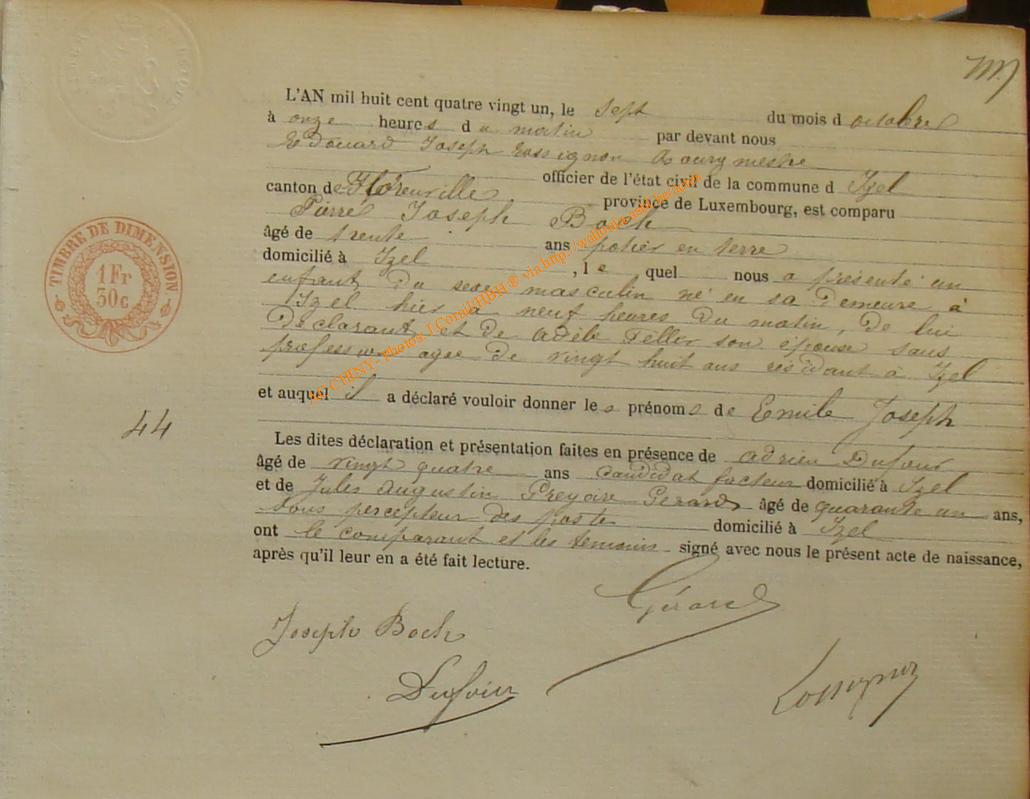 L'AN mil huit cent quatre vingt un, le sept du mois d octobre
à onze heures du matin par devant nous
Edouard Joseph Rossignon Bourgmestre
officier de l'état civil de la commune d Izel
canton de Florenville province de Luxembourg, est comparu
Pierre Joseph Boch
âgé de trente ans potier en terre
domicilié à Izel, le quel nous a présenté un
enfant du sexe masculin né en sa demeure à
Izel hier à neuf heures du matin, de lui
déclarant et de Adèle Feller son épouse sans
profession agée de vingt huit ans résidant à Izel
et auquel il a déclaré vouloir donner les prénoms de Emile Joseph
Les dites déclaration et présentation faites en présence de Adrien Dufour
âgé de vingt quatre ans candidat facteur domicilié à Izel
et de Jules Augustin Grégoire Gerard âgé de quarante un ans,
sous percepteur des postes domicilié à Izel
ont le comparant et les temoins signé avec nous le présent acte de naissance,
après qu'il leur en a été fait lecture.
Gérard
Joseph Boch
Dufour
Rossignon
44
TIMBRE DE DIMENSION
1 Fr
30c